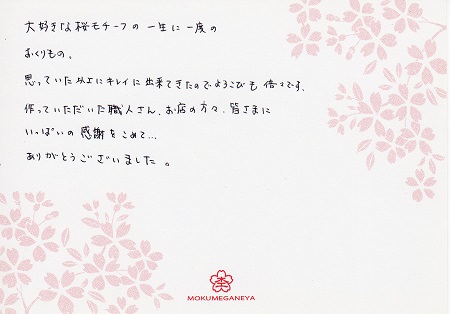 大好きな桜モチーフの一生に一度の
おくりもの。
思っていた以上にキレイに出来てきたのでよろこびも倍々です。
作っていただいた職人さん、お店の方々、皆さまに
いっぱいの感謝をこめて…
ありがとうございました。
MOKUMEGANEYA